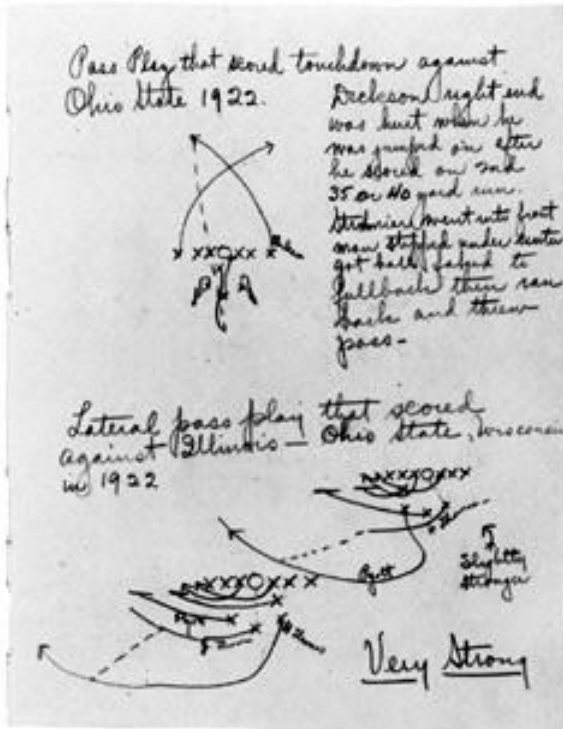 Pass Play that scored touchdown against
Ohio State 1922.
Dickson right end
was hurt when he
was jumped on after
he scored on 2nd
35 or 40 yard run.
went into front
man stepped under center
got ball, faked to
fullback then ran
back and threw
pass -
Lateral pass play that scored
against Illinois — Ohio State, Wisconsin
in 1922
Slightly
stronger
Pyott
Very Strong